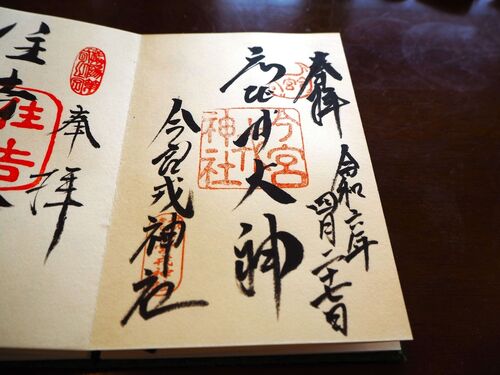 奉拝
令和六年
四月二十七日
大神
今宮
戎
神社
今宮戎神社
奉拝
住吉
住吉